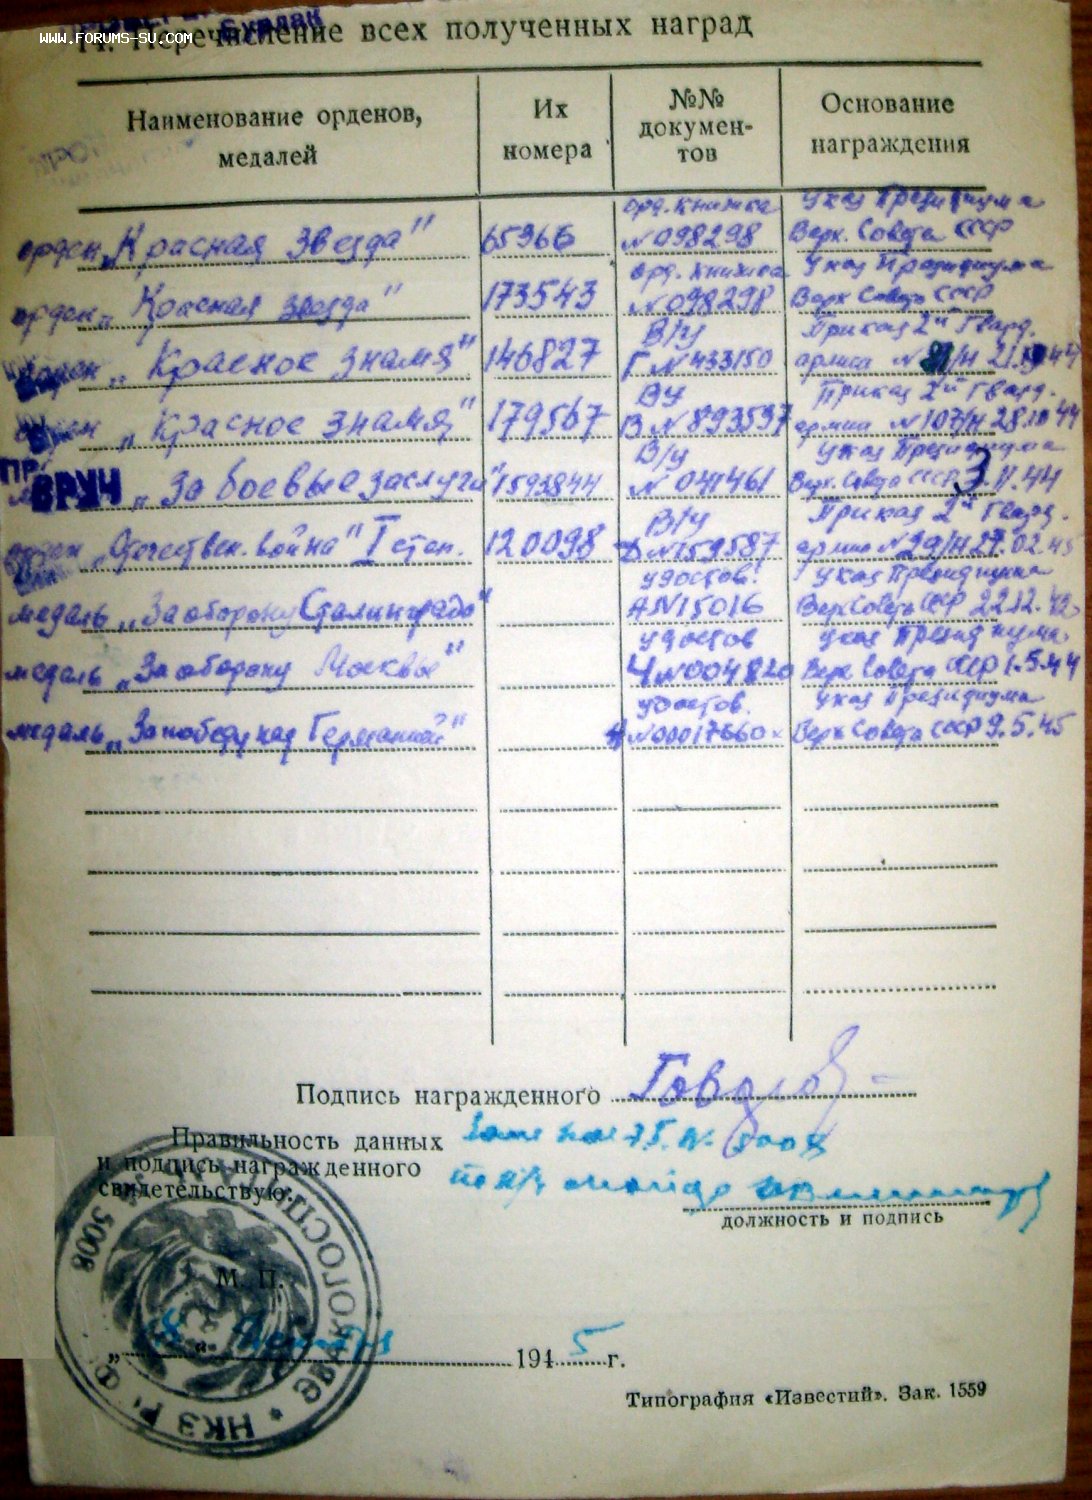 www.forums-su.com
Бурдак
14. Перечисление всех полученных наград
Наименование орденов, медалей
Их номера
№№ докумен-тов
Основание награждения
орден „Красная Звезда" 65366 орд. книжка №098298 Указ Президиума Верх. Совета СССР
орден „Красная звезда" 173543 орд. книжка №098298 Указ Президиума Верх Совета СССР
орден „Красное знамя" 146827 В/у Г №433150 Приказ 2й Гвард. армии
орден „Красное знамя" 179567 ВУ В №893597 Приказ 2й Гвард. армии №107/н 28.10.44
ВРУЧ „За боевые заслуги" 1593844 В/у №041461 Указ Президиума Верх. Совета СССР 3.11.44
орден „Отечествен. война" I степ. 120098 В/у Д №159587 Приказ 2й Гвард. армии №29/н 27.02.45
медаль „За оборону Сталинграда" удостов. А№15016 Указ Президиума Верх Совета СССР 22.12.42
медаль „За оборону Москвы" удостов Ч №004820 Указ Президиума Верх Совета СССР 1.5.44
медаль „За победу над Германией" удостов. №00017660 Указ Президиума Верх Совета СССР 9.5.45
Подпись награжденного
Правильность данных
и подпись награжденного
свидетельствую:
должность и подпись
М. П.
ЭВАКОГОСПИТАЛЬ № 5008 НКЗ
„ " 1945 г.
Типография «Известий». Зак. 1559